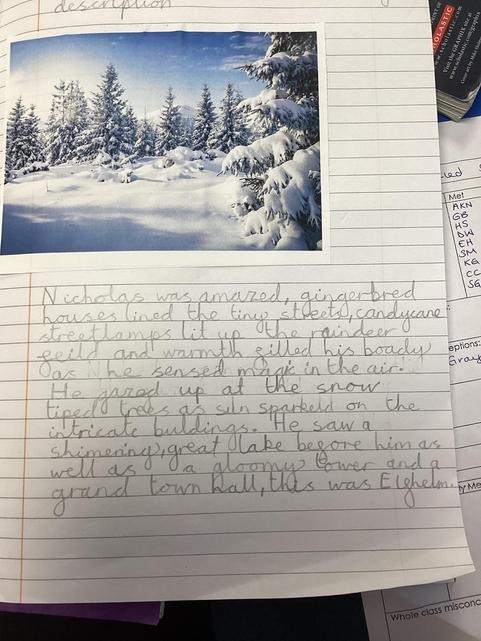 description
Nicholas was amazed, gingerbred
houses lined the tiny streets, candycane
streetlamps lit up the raindeer
feild and warmth filled his boady
as he sensed magic in the air.
He gazed up at the snow
tiped trees as sun sparkeld on the
intricate buldings. He saw a
shimering, great lake before him as
well as a gloomy tower and a
grand town hall, this was Elfhelm.
SCHOLASTIC
www.scholastic.com
Visit the GRAPHIX site at
www.scholastic.com/graphix
Me!
AKN
GB
HS
DW
EH
SM
KG
CC
SG
eptions:
Gray
Whole class miscon